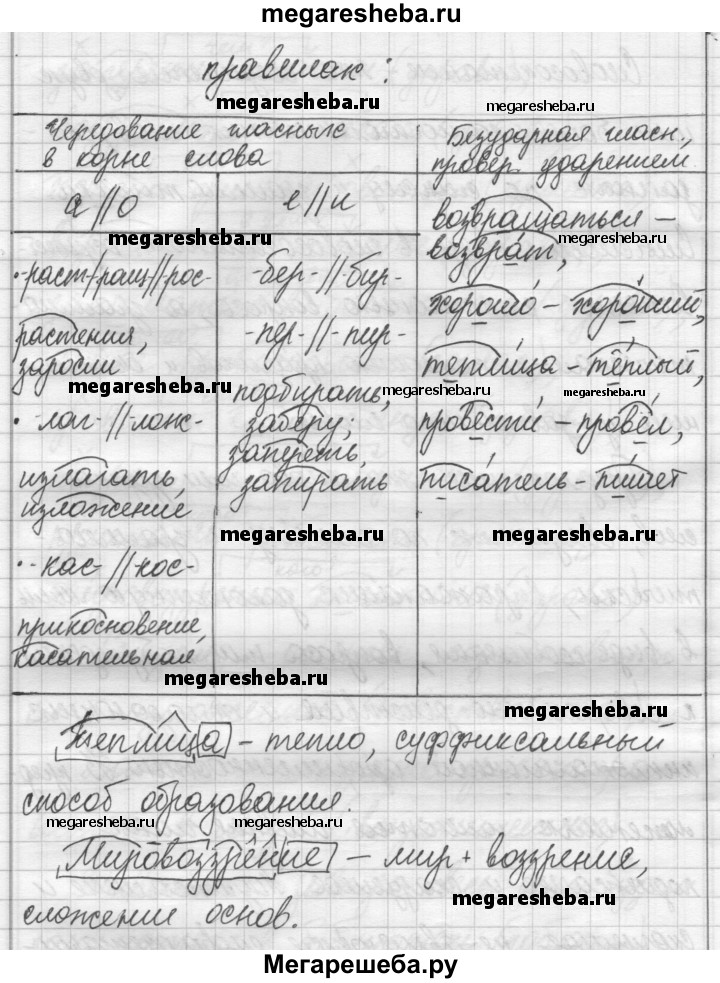 megaresheba.ru
правилах:
megaresheba.ru megaresheba.ru
Чередование гласных в корне слова
Безударная гласн., провер. ударением.
а//о
е//и
возвращаться –
megaresheba.ru megaresheba.ru
возврат,
-раст-/ращ//рос-
-бер-//-бир-
хорошо – хороший,
растения,
-пер-//-пир-
заросли
теплица – тёплый,
megaresheba.ru megaresheba.ru megaresheba.ru
подбирать,
-лаг-//-лож-
заберу;
провести – провёл,
запереть,
излагать,
запирать
писатель – пишет
изложение
megaresheba.ru megaresheba.ru
-кас-//-кос-
прикосновение,
касательная
megaresheba.ru
megaresheba.ru
Теплица – тепло, суффиксальный
способ образования.
megaresheba.ru megaresheba.ru megaresheba.ru
Мировоззрение – мир + воззрение,
megaresheba.ru
сложение основ.
Мегарешеба.ру